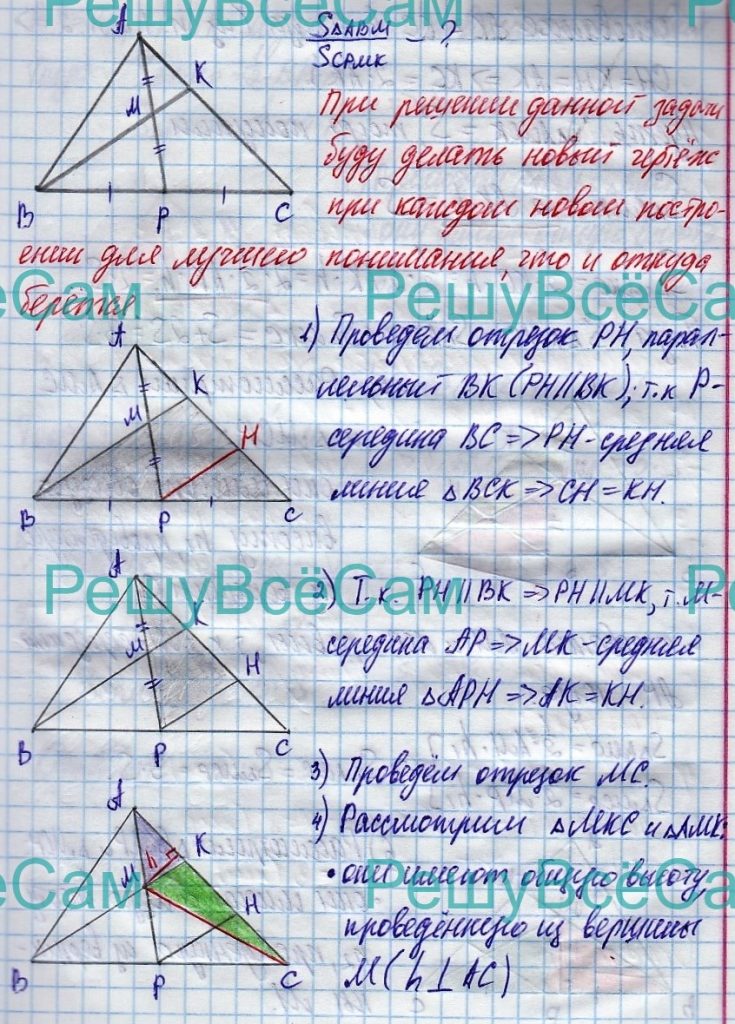 РешуВсёСам
РешуВсёСам
A
K
M
B
P
C
SΔABM
SCPMK
— ?
При решении данной задачи
буду делать новый чертёж
при каждом новом постро-
ении для лучшего понимания, что и откуда
берётся
РешуВсёСам
РешуВсёСам
A
K
M
H
B
P
C
1) Проведём отрезок PH, парал-
лельный BK (PH||BK); т.к P-
середина BC => PH - средняя
линия ΔBCK => CH = KH.
РешуВсёСам
РешуВсёСам
A
K
M
H
B
P
C
2) Т.к. PH||BK => PH||MK, т.M-
середина AP => MK - средняя
линия ΔAPH => AK = KH.
3) Проведём отрезок MC.
4) Рассмотрим ΔMKC и ΔAMK:
РешуВсёСам
РешуВсёСам
A
h
K
M
H
B
P
C
• они имеют общую высоту,
проведённую из вершины
M (h ⊥ AC)